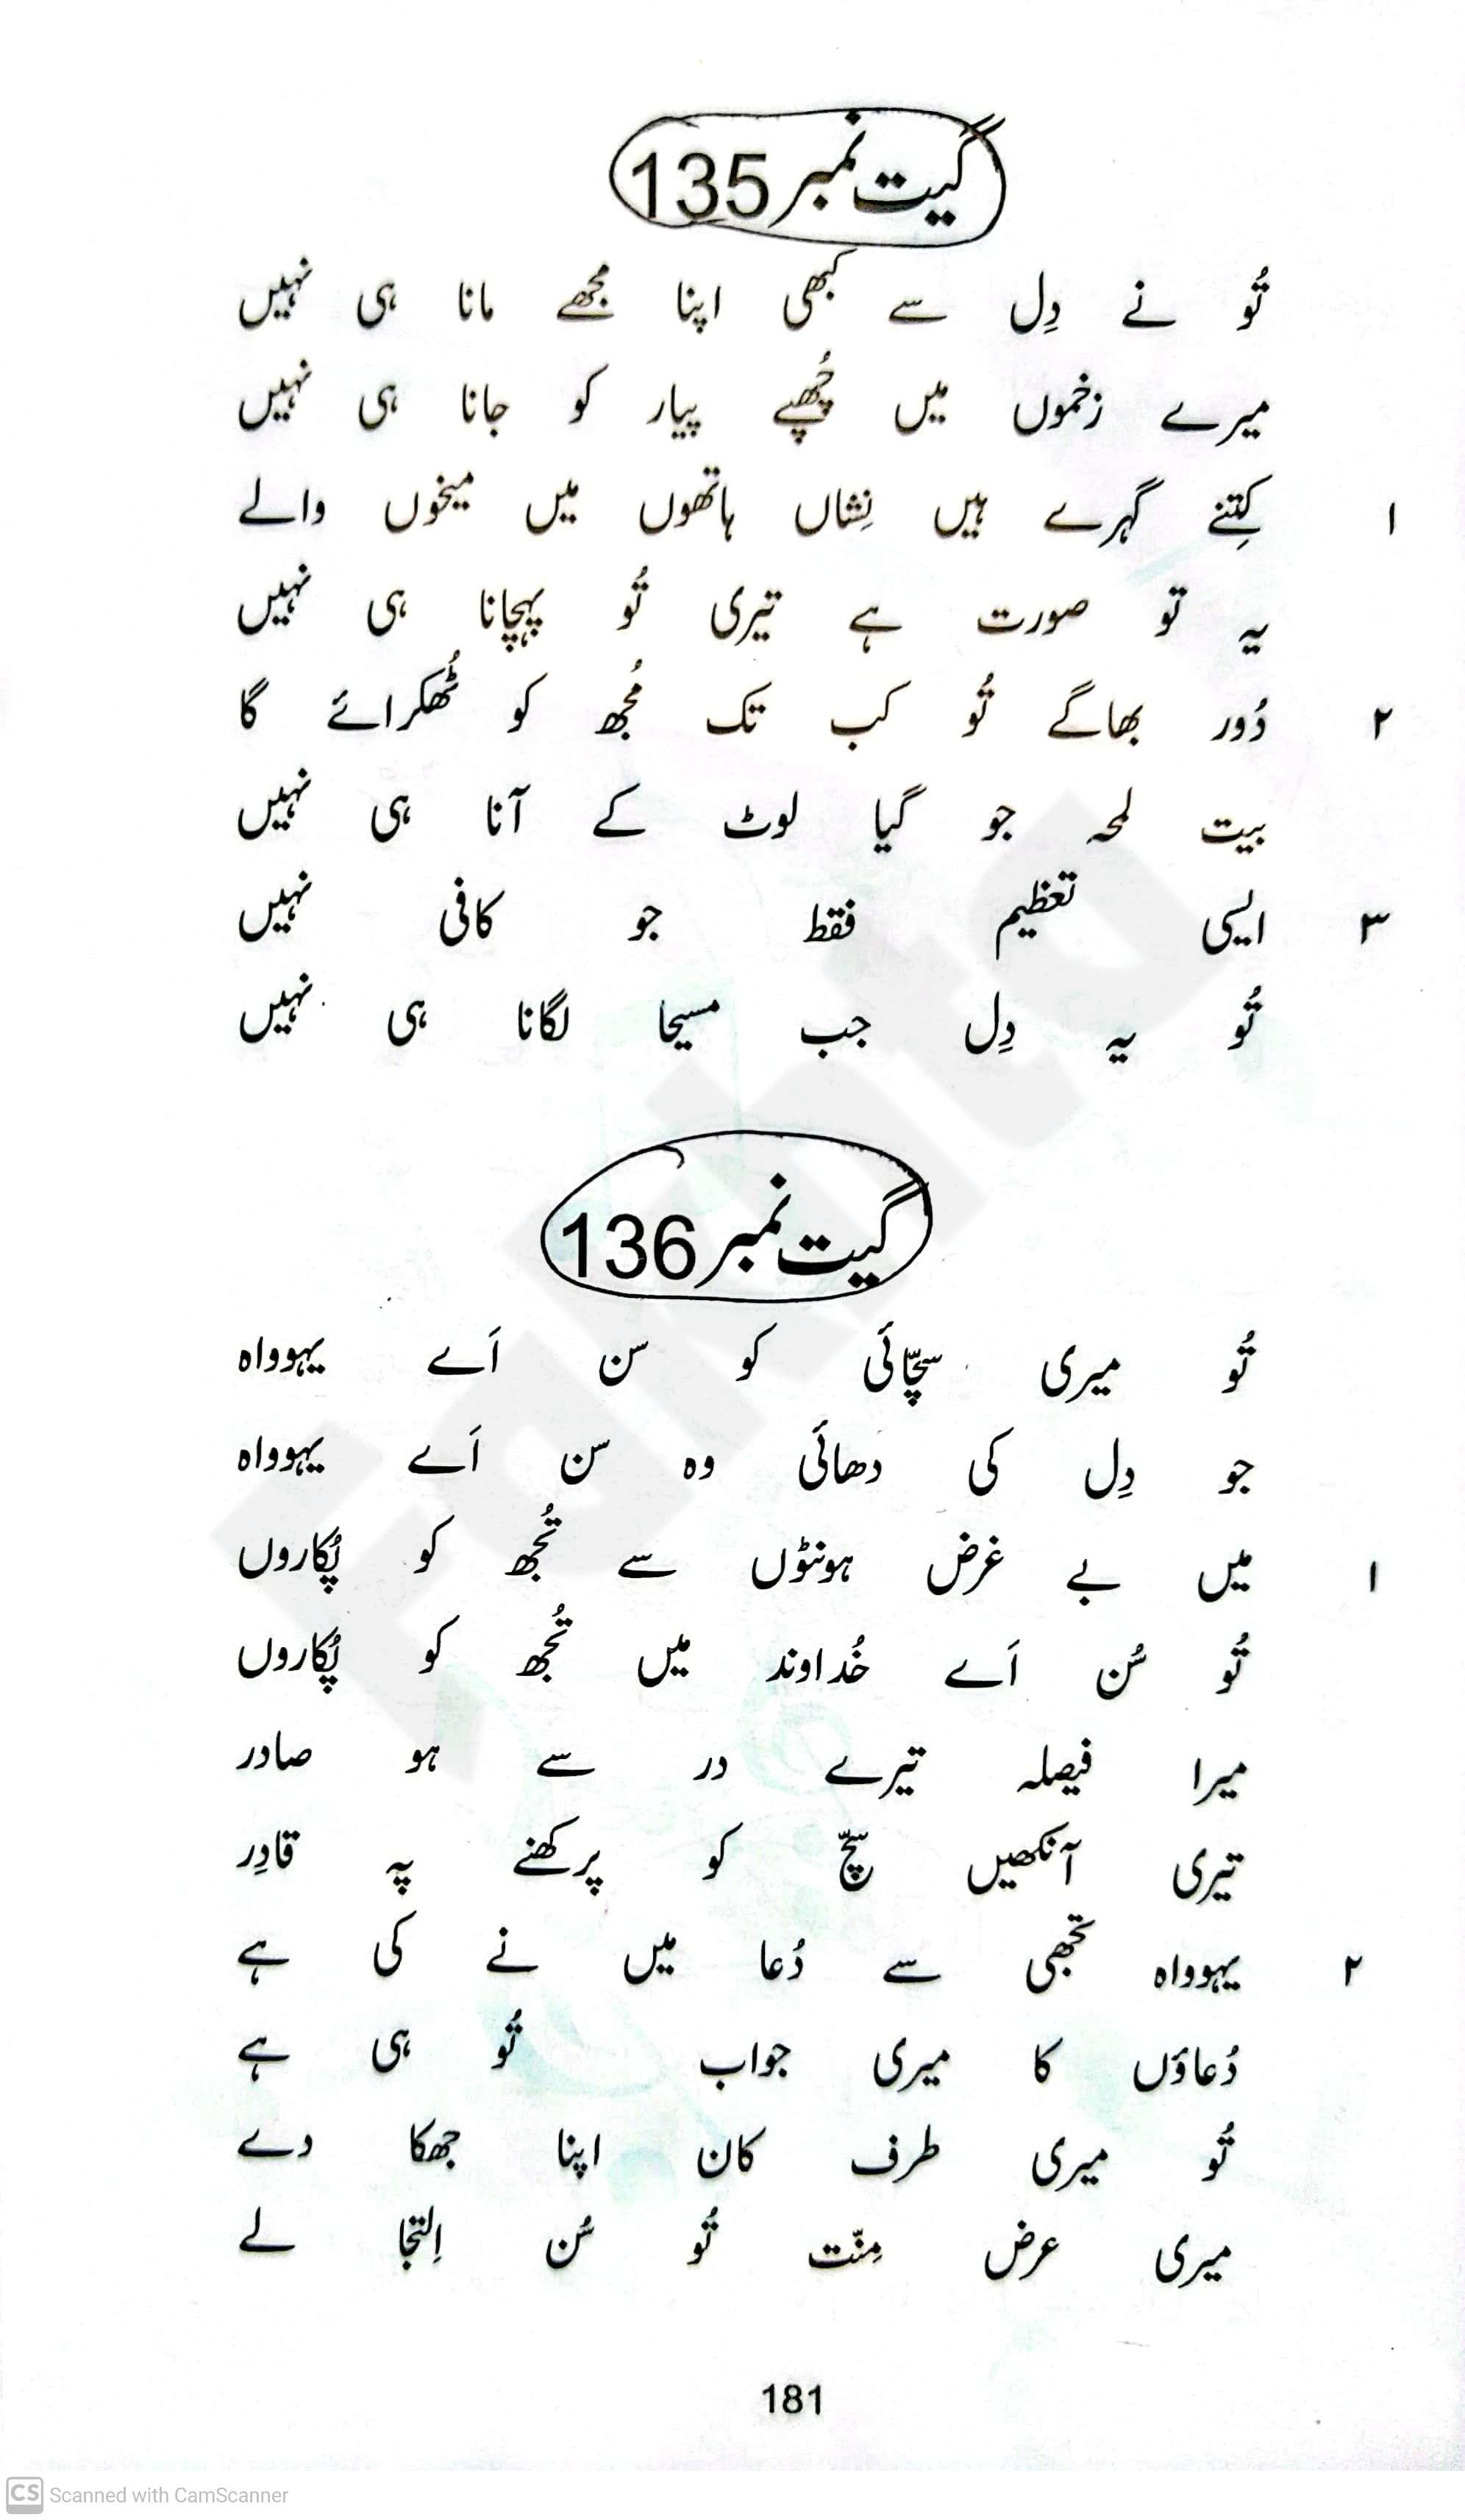 گیت نمبر 135
تُو نے دِل سے کبھی اپنا مُجھے مانا ہی نہیں
میرے زخموں میں چُھپے پیار کو جانا ہی نہیں
۱ کِتنے گہرے ہیں نِشاں ہاتھوں میں میخوں والے
یہ تو صورت ہے تیری تُو پہچانا ہی نہیں
۲ دُور بھاگے تُو کب تک مُجھ کو ٹُھکرائے گا
بیت لمحہ جو گیا لوٹ کے آنا ہی نہیں
۳ ایسی تعظیم فقط جو کافی نہیں
تُو یہ دِل جب مسیحا لگانا ہی نہیں
گیت نمبر 136
تُو میری سچّائی کو سن اَے یہوواہ
جو دِل کی دھائی وہ سن اَے یہوواہ
۱ میں بے غرض ہونٹوں سے تُجھ کو پُکاروں
تُو سُن اَے خُداوند میں تُجھ کو پُکاروں
میرا فیصلہ تیرے در سے ہو صادر
تیری آنکھیں سچّ کو پرکھنے پہ قادِر
۲ یہوواہ تجھی سے دُعا میں نے کی ہے
دُعاؤں کا میری جواب تُو ہی ہے
تُو میری طرف کان اپنا جھکا دے
میری عرض مِنّت تُو سُن اِلتجا لے
181
Fakhta
CS Scanned with CamScanner